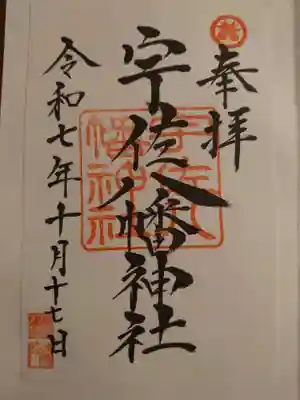 奉拝
宇佐八幡神社
令和七年十月十七日
宇佐八
幡神社